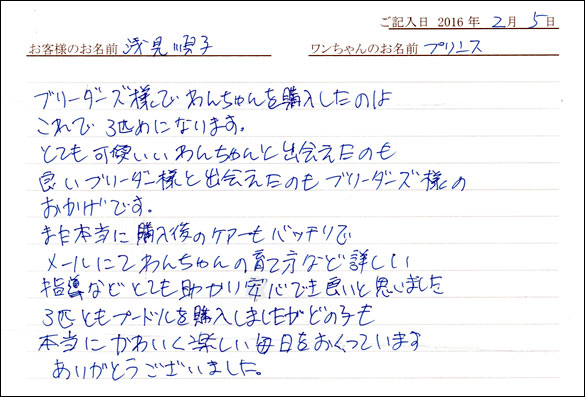 ご記入日 2016 年 2 月 5 日
お客様のお名前 浅見 順子 ワンちゃんのお名前 プリンス
ブリーダーズ様でわんちゃんを購入したのは
これで3匹めになります。
とても可愛いいわんちゃんと出会えたのも
良いブリーダー様と出会えたのもブリーダーズ様の
おかげです。
また本当に購入後のケアーもバッチリで
メールにてわんちゃんの育て方など詳しい
指導などとても助かり安心でき良いと思いました
3匹ともプードルを購入しましたがどの子も
本当にかわいく楽しい毎日をおくっています
ありがとうございました。